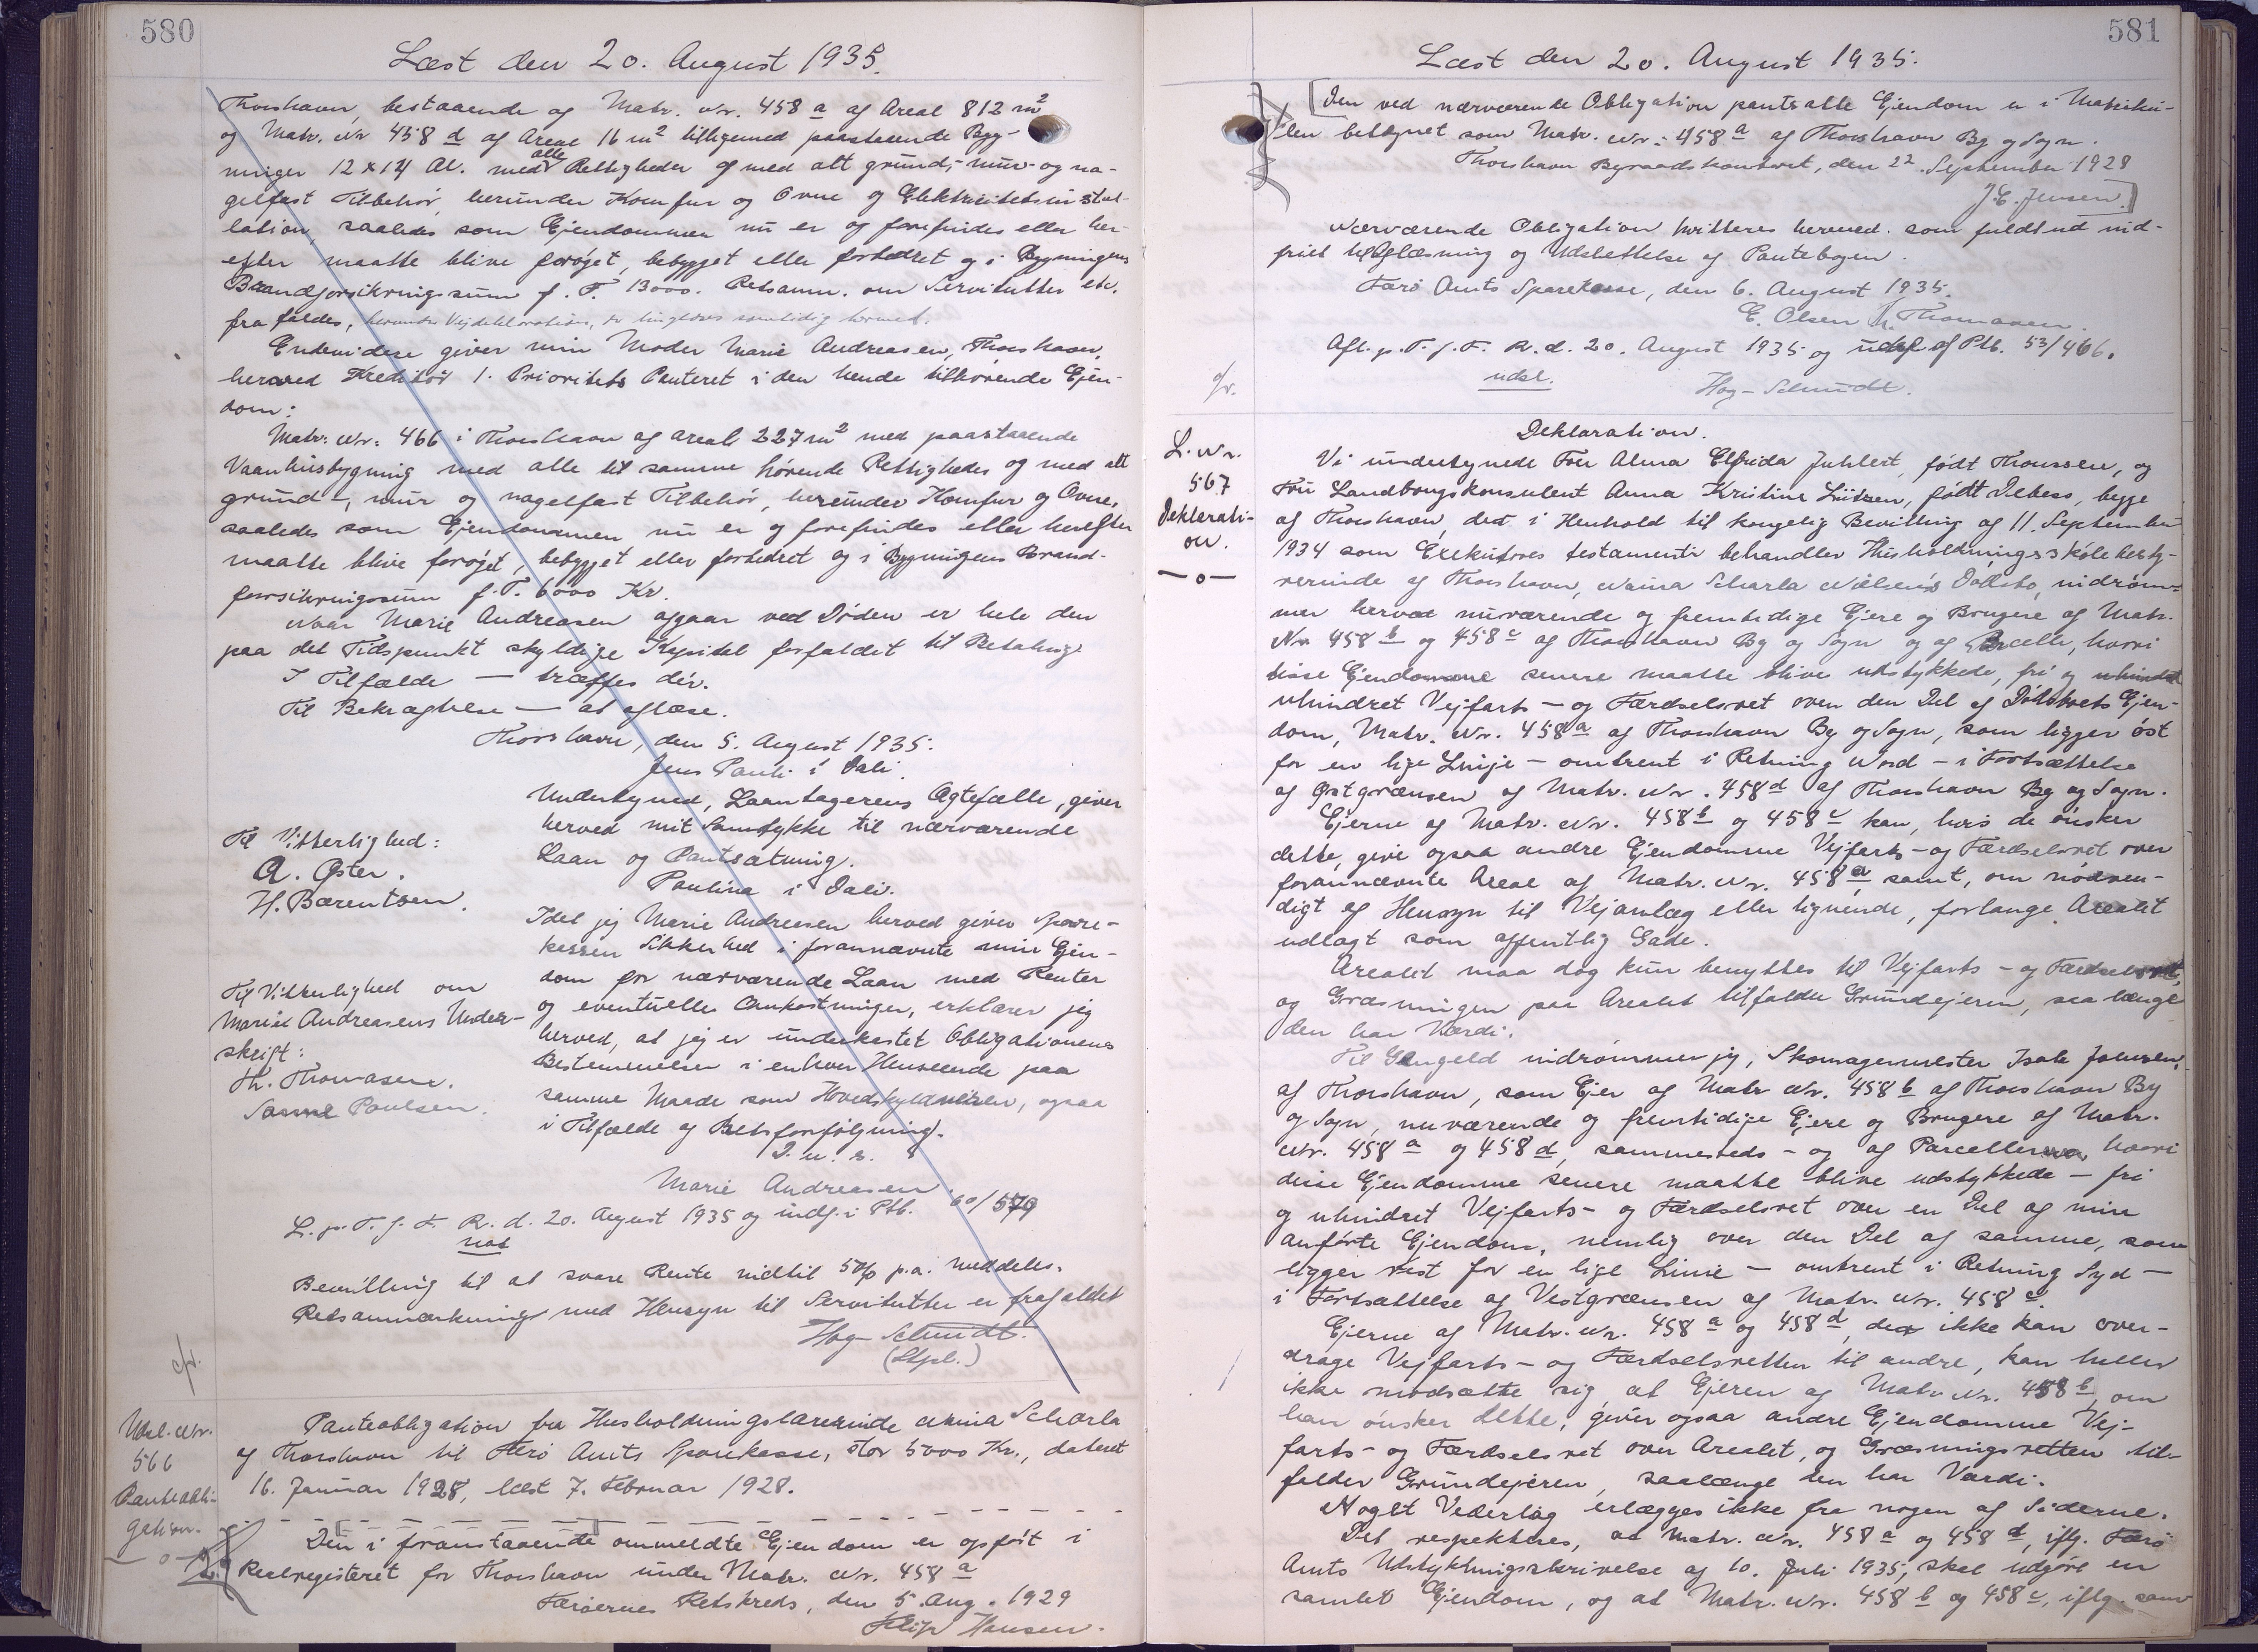 580
Læst den 20. August 1935.
Thorshavn, bestaaende af Matr. Nr. 458 a af Areal 812 m2
og Matr. Nr 458 d af Areal 16 m2 tilligemed paastaaende Byg-
ninger 12 x 14 Al. med alle Rettigheder og med alt grund-, mur- og na-
gelfast Tilbehør, herunder Komfur og Ovne og Elektricitetsinstal-
lation, saaledes som Ejendommen nu er og forefindes eller her-
efter maatte blive forøget, bebygget eller forbedret og i Bygningens
Brandforsikringssum f. T. 13000. Retsanm. om Servitutter etc.
frafaldes, herunder Vejdeklaration, der tinglæses samtidig hermed.
Endvidere giver min Moder Marie Andreasen, Thorshavn,
herved Kreditor 1. Prioritets Panteret i den hende tilhørende Ejen-
dom:
Matr. Nr. 466 i Thorshavn af areal 227 m2 med paastaaende
Vaanhusbygning med alle til samme hørende Rettigheder og med alt
grund-, mur og nagelfast Tilbehør, herunder Komfur og Ovne,
saaledes som Ejendommen nu er og forefindes eller herefter
maatte blive forøget, bebygget eller forbedret og i Bygningens Brand-
forsikringssum f. T. 6000 Kr.
Naar Marie Andreasen afgaar ved Døden er hele den
paa det Tidspunkt skyldige Kapital forfaldet til Betaling.
I Tilfælde — træffes dér.
Til Bekræftelse — at aflæse.
Thorshavn, den 5. August 1935.
Jens Pauli i Dali.
Undertegnede, Laantagerens Ægtefælle, giver
herved mit Samtykke til nærværende
Laan og Pantsætning.
Paulina i Dali.
Til Vitterlighed:
A. Øster.
H. Bærentsen.
Idet jeg Marie Andreasen herved giver Spare-
kassen Sikkerhed i forannævnte min Ejen-
dom for nærværende Laan med Renter
og eventuelle Omkostninger, erklærer jeg
herved, at jeg er underkastet Obligationens
Bestemmelser i enhver Henseende paa
samme Maade som Hovedskyldneren, ogsaa
i Tilfælde af Retsforfølgning.
D. u. s.
Marie Andreasen
Til Vitterlighed om
Marie Andreasens Under-
skrift:
Th. Thomasen.
Sannel Poulsen.
L. p. T. f. F. R. d. 20. August 1935 og indf. i Ptb. 60/579
not
Bevilling til at svare Rente indtil 5% p.a. meddeles.
Retsanmærkning med Hensyn til Servitutter er frafaldet
Høg-Schmidt.
(Stpl.)
Udsl. Nr.
566
Panteobli-
gation.
— o —
Panteobligation fra Husholdningslærerinde Anina Scharla
af Thorshavn til Færø Amts Sparekasse, stor 5000 Kr., dateret
16. Januar 1928, læst 7. Februar 1928.
Den i foranstaaende ommeldte Ejendom er opført i
Realregisteret for Thorshavn under Matr. Nr. 458 a
Færøernes Retskreds, den 5. Aug. 1929
Filip Hansen.
581
Læst den 20. August 1935.
[Den ved nærværende Obligation pantsatte Ejendom er i Matriku-
len betegnet som Matr. Nr: 458 a af Thorshavn By og Sogn.
Thorshavn Byraadskontoret, den 22. September 1928
J. E. Jensen.]
Nærværende Obligation kvitteres herved som fuldt ud ind-
friet til Aflæsning og Udslettelse af Pantebogen.
Færø Amts Sparekasse, den 6. August 1935.
E. Olsen Th. Thomasen.
Afl. p. T. f. F. R. d. 20. August 1935 og udsl. af Ptb. 53/466.
udsl.
Høg-Schmidt.
L. Nr.
567
Deklarati-
on.
— o —
Deklaration.
Vi undertegnede Fru Alma Elfrida Juhlert, født Thomsen, og
Fru Landbrugskonsulent Anna Kristine Lützen, født Debess, begge
af Thorshavn, der i Henhold til kongelig Bevilling af 11. September
1934 som Executores testamenti behandler Husholdningsskolebesty-
rerinde af Thorshavn, Naina Scharla Nielsens Dødsbo, indrøm-
mer herved nuværende og fremtidige Ejere og Brugere af Matr.
Nr. 458 b og 458 c af Thorshavn By og Sogn og af Parcelle, hvori
disse Ejendomme senere maatte blive udstykkede, fri og uhindret
uhindret Vejfarts- og Færdselsret over den Del af Dødsboets Ejen-
dom, Matr. Nr. 458 a af Thorshavn By og Sogn, som ligger øst
for en lige Linje – omtrent i Retning Nord – i Fortsættelse
af Østgrænsen af Matr. Nr. 458 d af Thorshavn By og Sogn.
Ejerne af Matr. Nr. 458 b og 458 c kan, hvis de ønsker
dette, give ogsaa andre Ejendomme Vejfarts- og Færdselsret over
forannævnte Areal af Matr. Nr. 458 a, samt, om nødven-
digt af Hensyn til Vejanlæg eller lignende, forlange Arealet
udlagt som offentlig Gade.
Arealet maa dog kun benyttes til Vejfarts- og Færdselsret,
og Græsningen paa Arealet tilfalder Grundejeren, saa længe
den har Værdi.
Til Gengæld indrømmer jeg, Skomagermester Isak Johnsen,
af Thorshavn, som Ejer af Matr Nr. 458 b af Thorshavn By
og Sogn, nuværende og fremtidige Ejere og Brugere af Matr.
Nr. 458 a og 458 d, sammesteds – og af Parceller, hvori
disse Ejendomme senere maatte blive udstykkede – fri
og uhindret Vejfarts- og Færdselsret over en Del af min
anførte Ejendom, nemlig over den Del af samme, som
ligger vest for en lige Linie – omtrent i Retning Syd –
i Fortsættelse af Vestgrænsen af Matr. Nr. 458 c.
Ejerne af Matr. Nr. 458 a og 458 d, der ikke kan over-
drage Vejfarts- og Færdselsretten til andre, kan heller
ikke modsætte sig, at Ejeren af Matr Nr. 458 b, om
han ønsker dette, giver ogsaa andre Ejendomme Vej-
farts- og Færdselsret over Arealet, og Græsningsretten til-
falder Grundejeren, saalænge den har Værdi.
Noget Vederlag erlægges ikke fra nogen af Siderne.
Det respekteres, at Matr. Nr. 458 a og 458 d, iflg. Færø
Amts Udstykningsskrivelse af 10. Juli 1935, skal udgøre en
samlet Ejendom, og at Matr. Nr. 458 b og 458 c, iflg. sam